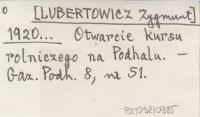 o [LUBERTOWICZ Zygmunt]
1920... Otwarcie kursu
rolniczego na Podhalu. —
Gaz. Podh. 8, nr 51.